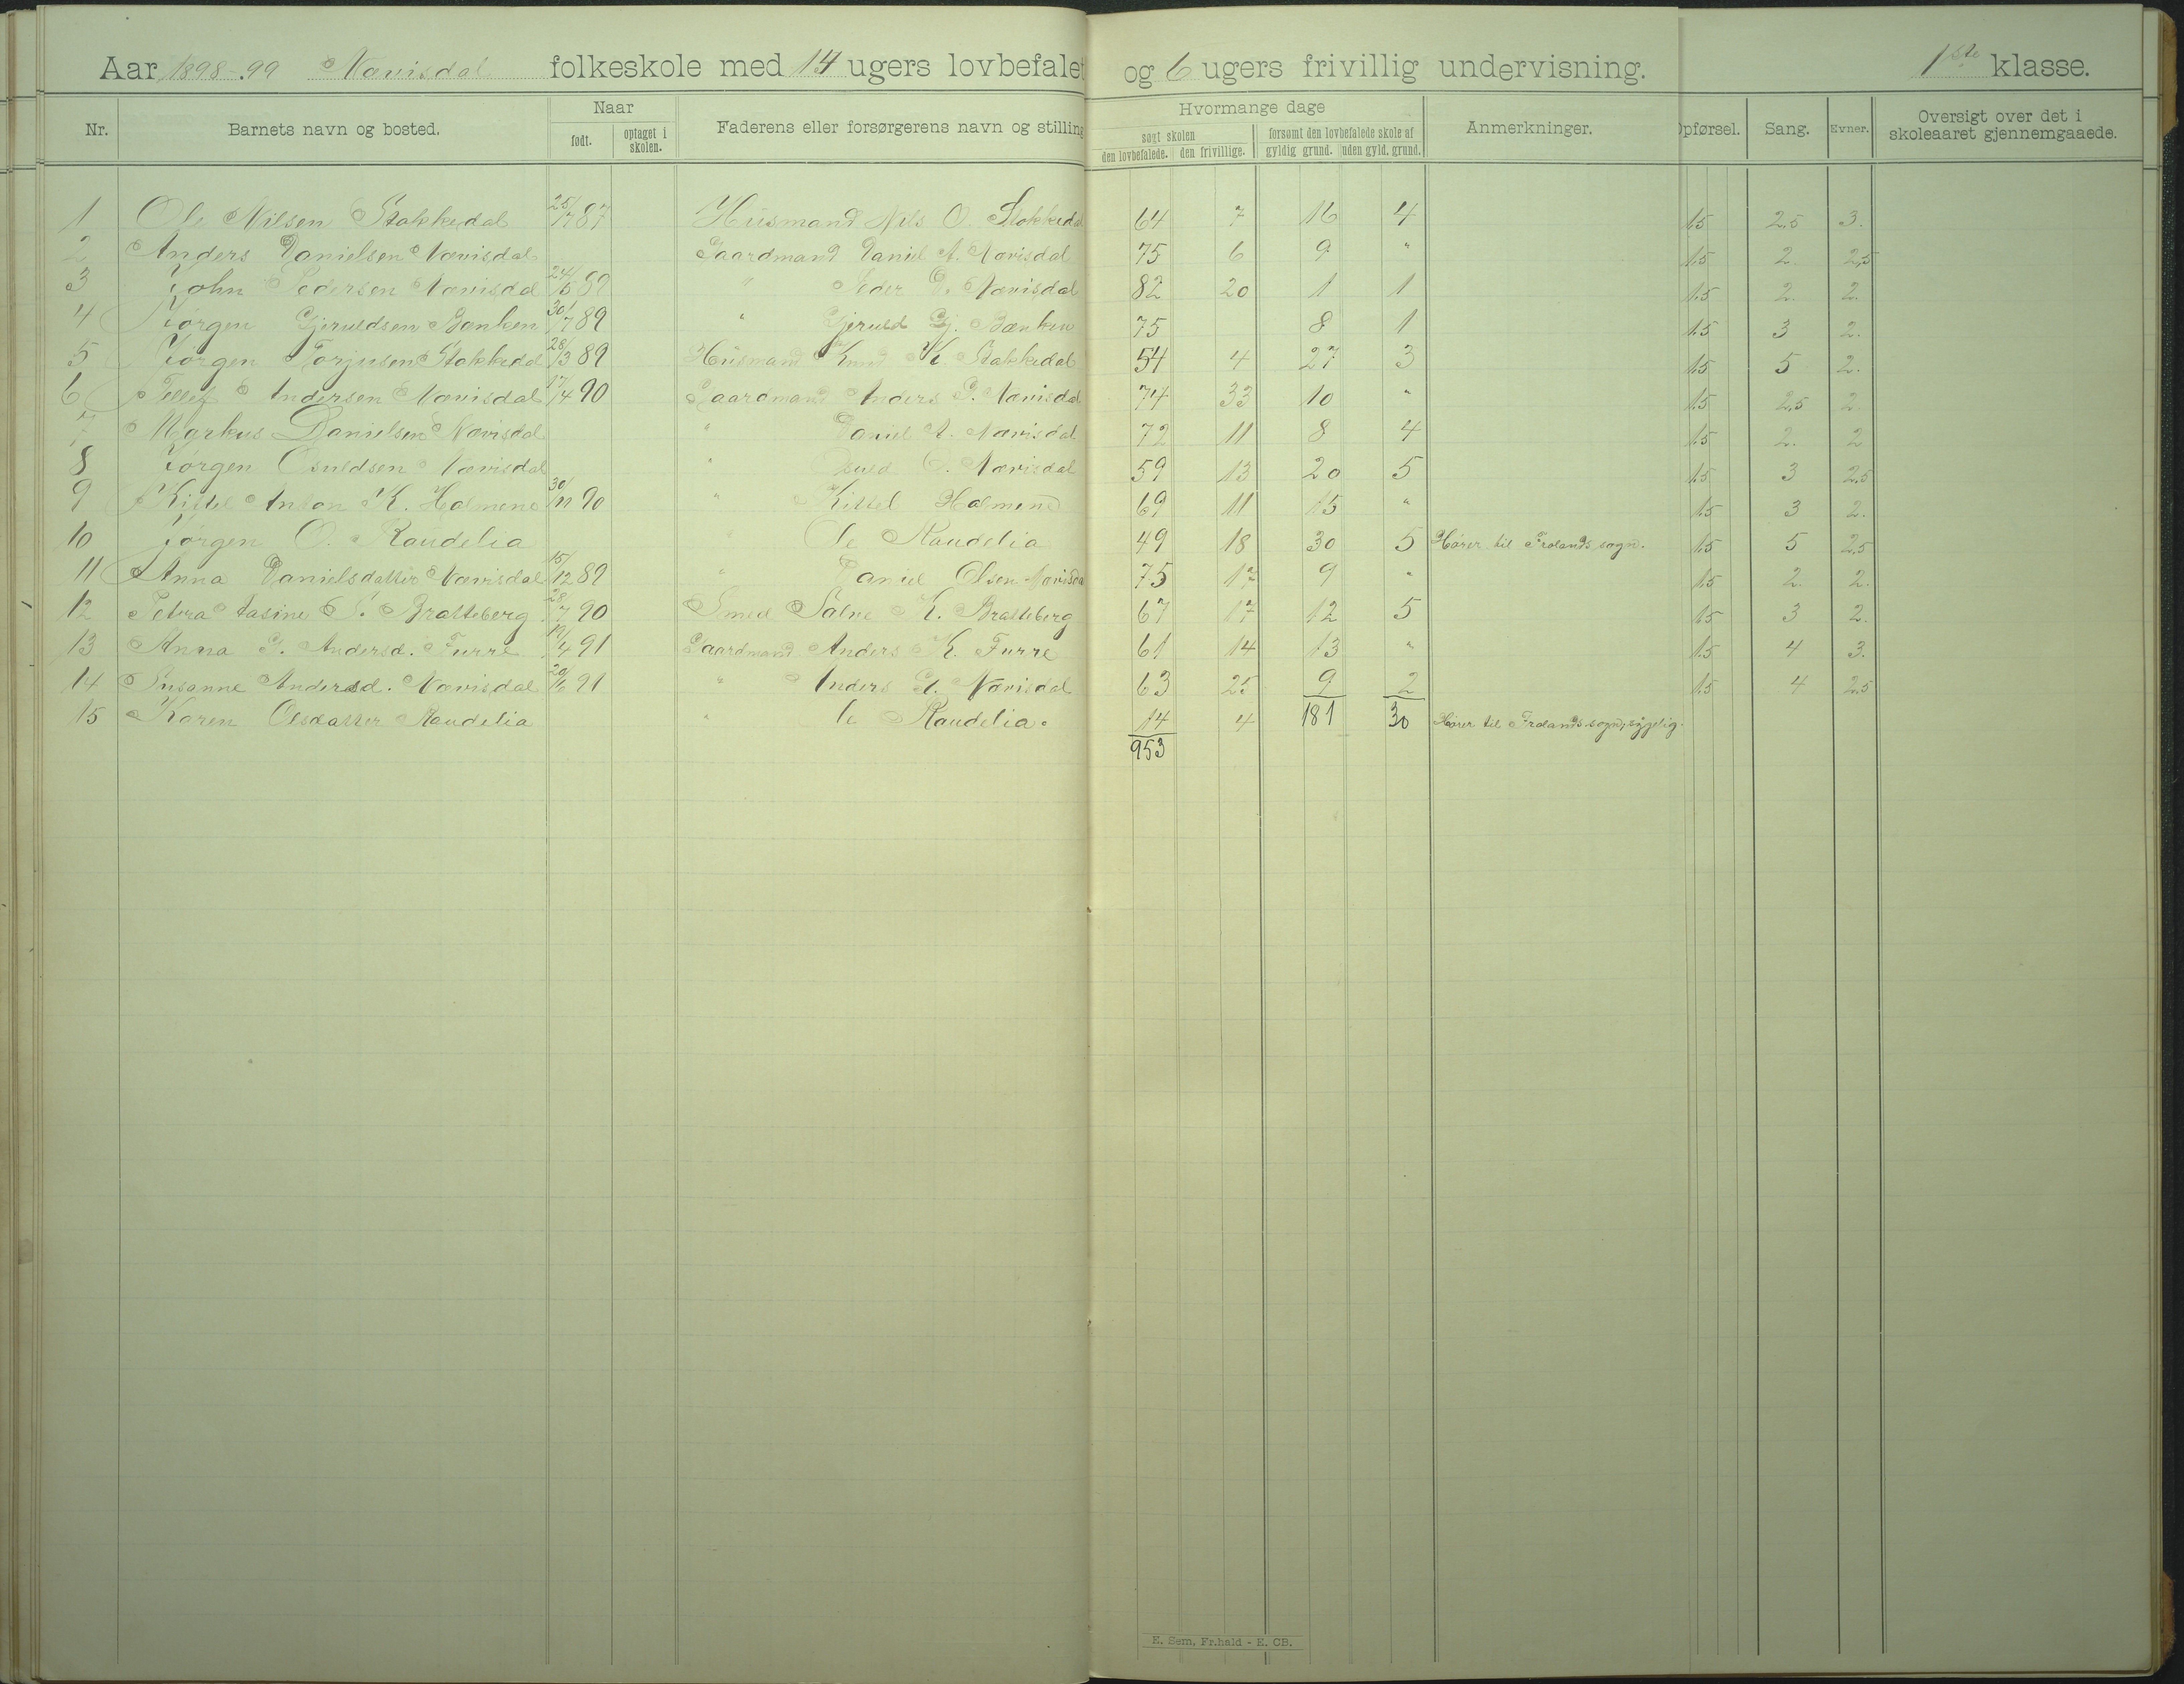 Aar 1898-99 Nævisdal folkeskole med 14 ugers lovbefalet og 6 ugers frivillig undervisning. 1ste klasse.
Nr. Barnets navn og bosted. Naar født. optaget i skolen. Faderens eller forsørgerens navn og stilling Hvormange dage søgt skolen den lovbefalede. den frivillige. forsømt den lovbefalede skole af gyldig grund. uden gyld. grund. Anmerkninger. Opførsel. Sang. Evner. Oversigt over det i skoleaaret gjennemgaaede.
1 Ole Nilsen Stokkedal 25/7 87 Husmand Nils O. Stokkedal 64 7 16 4 1.5 2.5 3.
2 Anders Danielsen Nævisdal Gaardmand Daniel A. Nævisdal 75 6 9 " 1.5 2. 2.5
3 John Pedersen Nævisdal 24/5 89 " Peder D. Nævisdal 82 20 1 1 1.5 2. 2.
4 Jørgen Gjeruldsen Bænken 30/7 89 " Gjeruld Gj. Bænken 75 8 1 1.5 3 2.
5 Jørgen Torjusen Stokkedal 28/3 89 Husmand Knud K. Stokkedal 54 4 27 3 1.5 5 2.
6 Tellef Andersen Nævisdal 17/4 90 Gaardmand Anders G. Nævisdal 74 33 10 " 1.5 2.5 2.
7 Markus Danielsen Nævisdal " Daniel A. Nævisdal 72 11 8 4 1.5 2. 2
8 Jørgen Osuldsen Nævisdal " Osuld O. Nævisdal 59 13 20 5 1.5 3 2.5
9 Kittel Anton K. Holmene 30/11 90 " Kittel Holmene 69 11 15 " 1.5 3 2.
10 Jørgen O. Raudelia " Ole Raudelia 49 18 30 5 Hører til Frolands sogn. 1.5 5 2.5
11 Anna Danielsdatter Nævisdal 15/12 89 " Daniel Olsen Nævisdal 75 17 9 " 1.5 2. 2.
12 Petra Tasine S. Bratteberg 28/7 90 Smed Salne K. Bratteberg 67 17 12 5 1.5 3 2.
13 Anna G. Andersd. Furre 19/4 91 Gaardmand Anders K. Furre 61 14 13 " 1.5 4 3.
14 Susanne Andersd. Nævisdal 20/6 91 " Anders G. Nævisdal 63 25 9 2 1.5 4 2.5
15 Karen Olsdatter Raudelia " Ole Raudelia. 14 4 181 30 Hører til Frolands sogn, sygelig.
953
E. Sem, Fr.hald - E. CB.